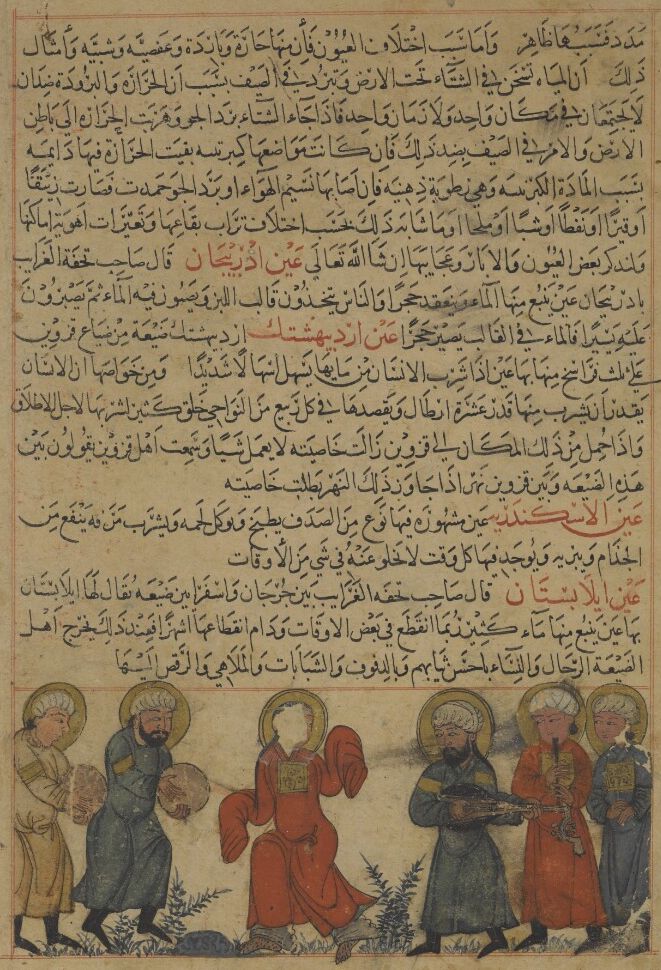 مدد فسببها ظاهر واما سبب اختلاف العيون فان منها حارة وباردة وعفصيه وشبيه وامثال
ذلك ان المياه تسخن في الشتاء تحت الارض وتبرد في الصيف بسبب ان الحرارة والبرودة ضدان
لا يجتمعان في مكان واحد ولا زمان واحد فاذا جاء الشتاء برد الجو وهربت الحرارة الى باطن
الارض والامر في الصيف بضد ذلك فان كانت مواضعها كبريتيه بقيت الحرارة فيها دايمة
بسبب المادة الكبريتيه وهي رطوبة دهنية فان اصابها نسيم الهواء او برد الجو جمدت فصارت زيبقا
او قيرا او نفطا او شبا او ملحا او ما شابه ذلك بحسب اختلاف تراب بقاعها وتغيرات اهوية اماكنها
ولنذكر بعض العيون والابار وعجايبها ان شا الله تعالى عين اذربيجان قال صاحب تحفة الغرايب
باذربيجان عين ينبع منها الماء وينعقد حجرا والناس يتخذون قالب اللبن ويصبون فيه الماء ثم يصبرون
عليه يسيرا فالماء في القالب يصير حجرا عين اردبهشتك اردبهشتك ضيعة من ضياع قزوين
على ثلث فراسخ منها بها عين اذا شرب الانسان من مايها يسهل اسهالا شديدا ومن خواصها ان الانسان
يقدر ان يشرب منها قدر عشرة ارطال ويقصدها في كل ربيع من النواحي خلق كثير لشربها لاجل الاطلاق
واذا حمل من ذلك المكان الى قزوين زالت خاصيته لا يعمل شيا وسمعت اهل قزوين يقولون بين
هذه الضيعه وبين قزوين نهر اذا جاوز ذلك النهر بطلت خاصيته
عين الاسكندريه عين مشهورة فيها نوع من الصدف يطبخ ويوكل لحمه ويشرب مرقه ينفع من
الجذام ويبريه ويوجد فيها كل وقت لا يخلو عنه في شي من الاوقات
عين ايلابستان قال صاحب تحفه الغرايب بين جرجان واسفراين ضيعه يقال لها ايلابستان
بها عين ينبع منها ماء كثير ربما انقطع في بعض الاوقات ودام انقطاعها اشهرا فعند ذلك يخرج اهل
الضيعة الرجال والنساء باحسن ثيابهم وبالدفوف والشبابات والملاهي والرقص اليها